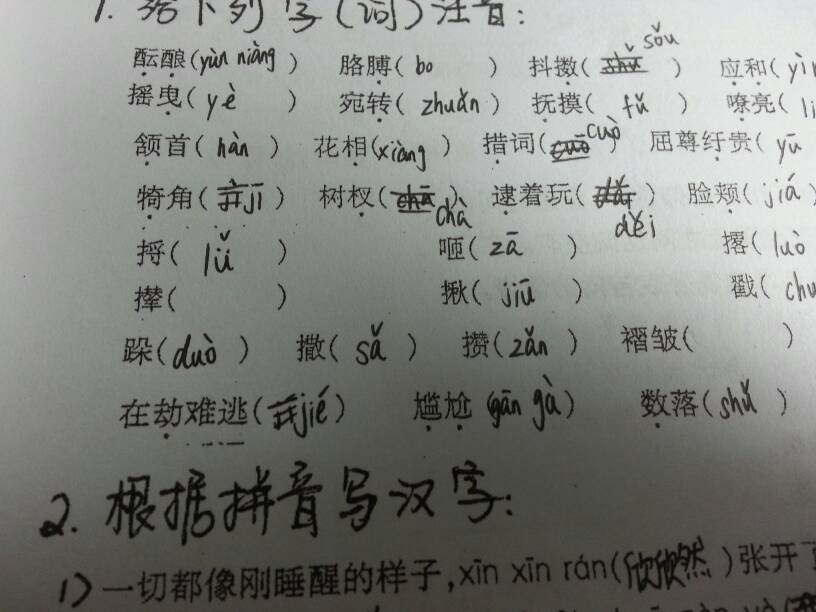 1. 给下列字(词)注音:
酝酿(yùn niàng) 胳膊(bo) 抖擞(sǒu) 应和(yìn
摇曳(yè) 宛转(zhuǎn) 抚摸(fǔ) 嘹亮(li
颔首(hàn) 花相(xiàng) 措词(cuò) 屈尊纡贵(yū
犄角(jī) 树杈(chà) 逮着玩(děi) 脸颊(jiá)
捋(lǚ) 咂(zā) 撂(luò
撵( ) 揪(jiū) 戳(chu
跺(duò) 撒(sǎ) 攒(zǎn) 褶皱( )
在劫难逃(jié) 尴尬(gān gà) 数落(shǔ)
2. 根据拼音写汉字:
1) 一切都像刚睡醒的样子,xīn xīn rán(欣欣然)张开了